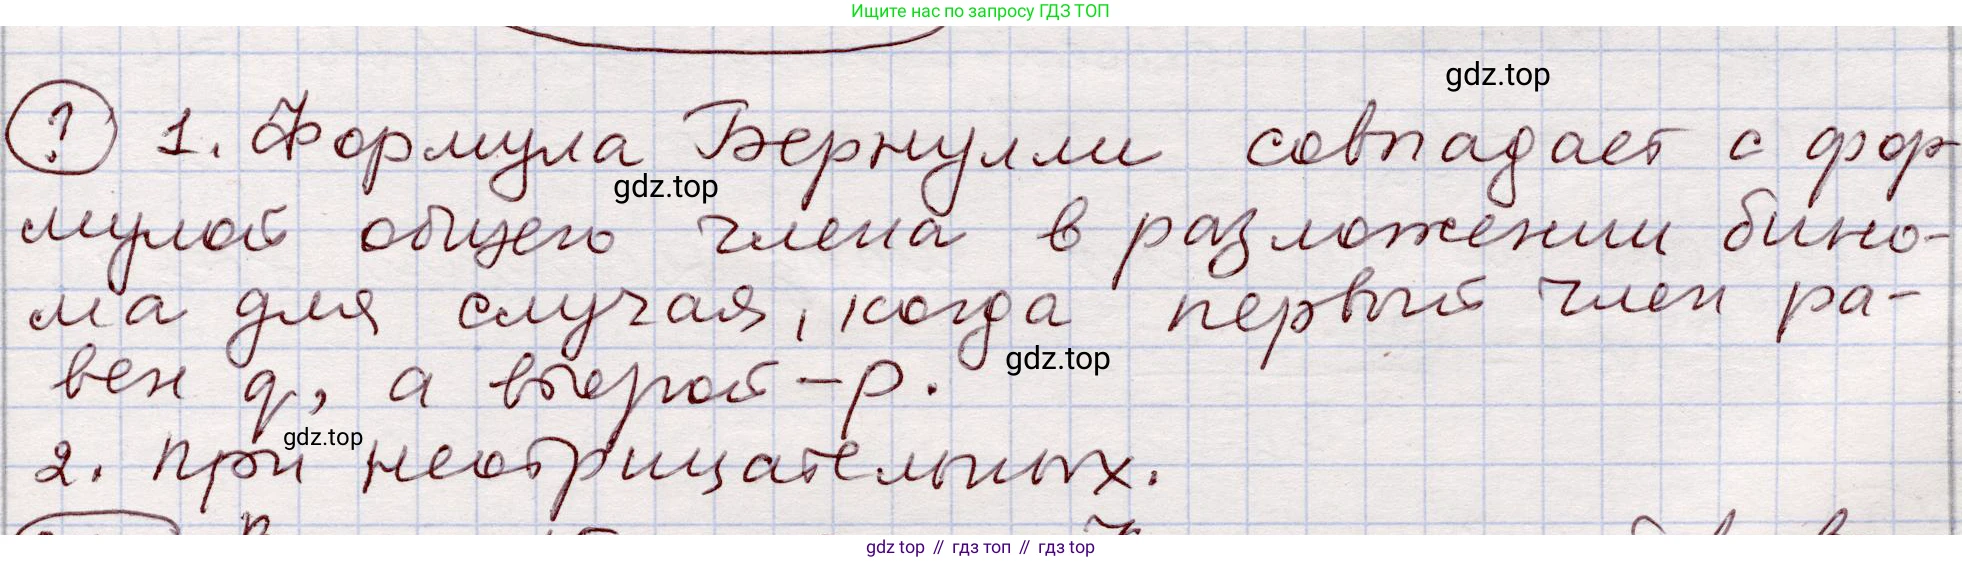 Ищите нас по запросу ГДЗ ТОП
gdz.top
? 1. Формула Бернулли совпадает с фор-
gdz.top
мулой общего члена в разложении бино-
ма для случая, когда первый член ра-
gdz.top
вен q, а второй – p.
gdz.top
2. при неотрицательных.
gdz top // гдз топ // гдз top